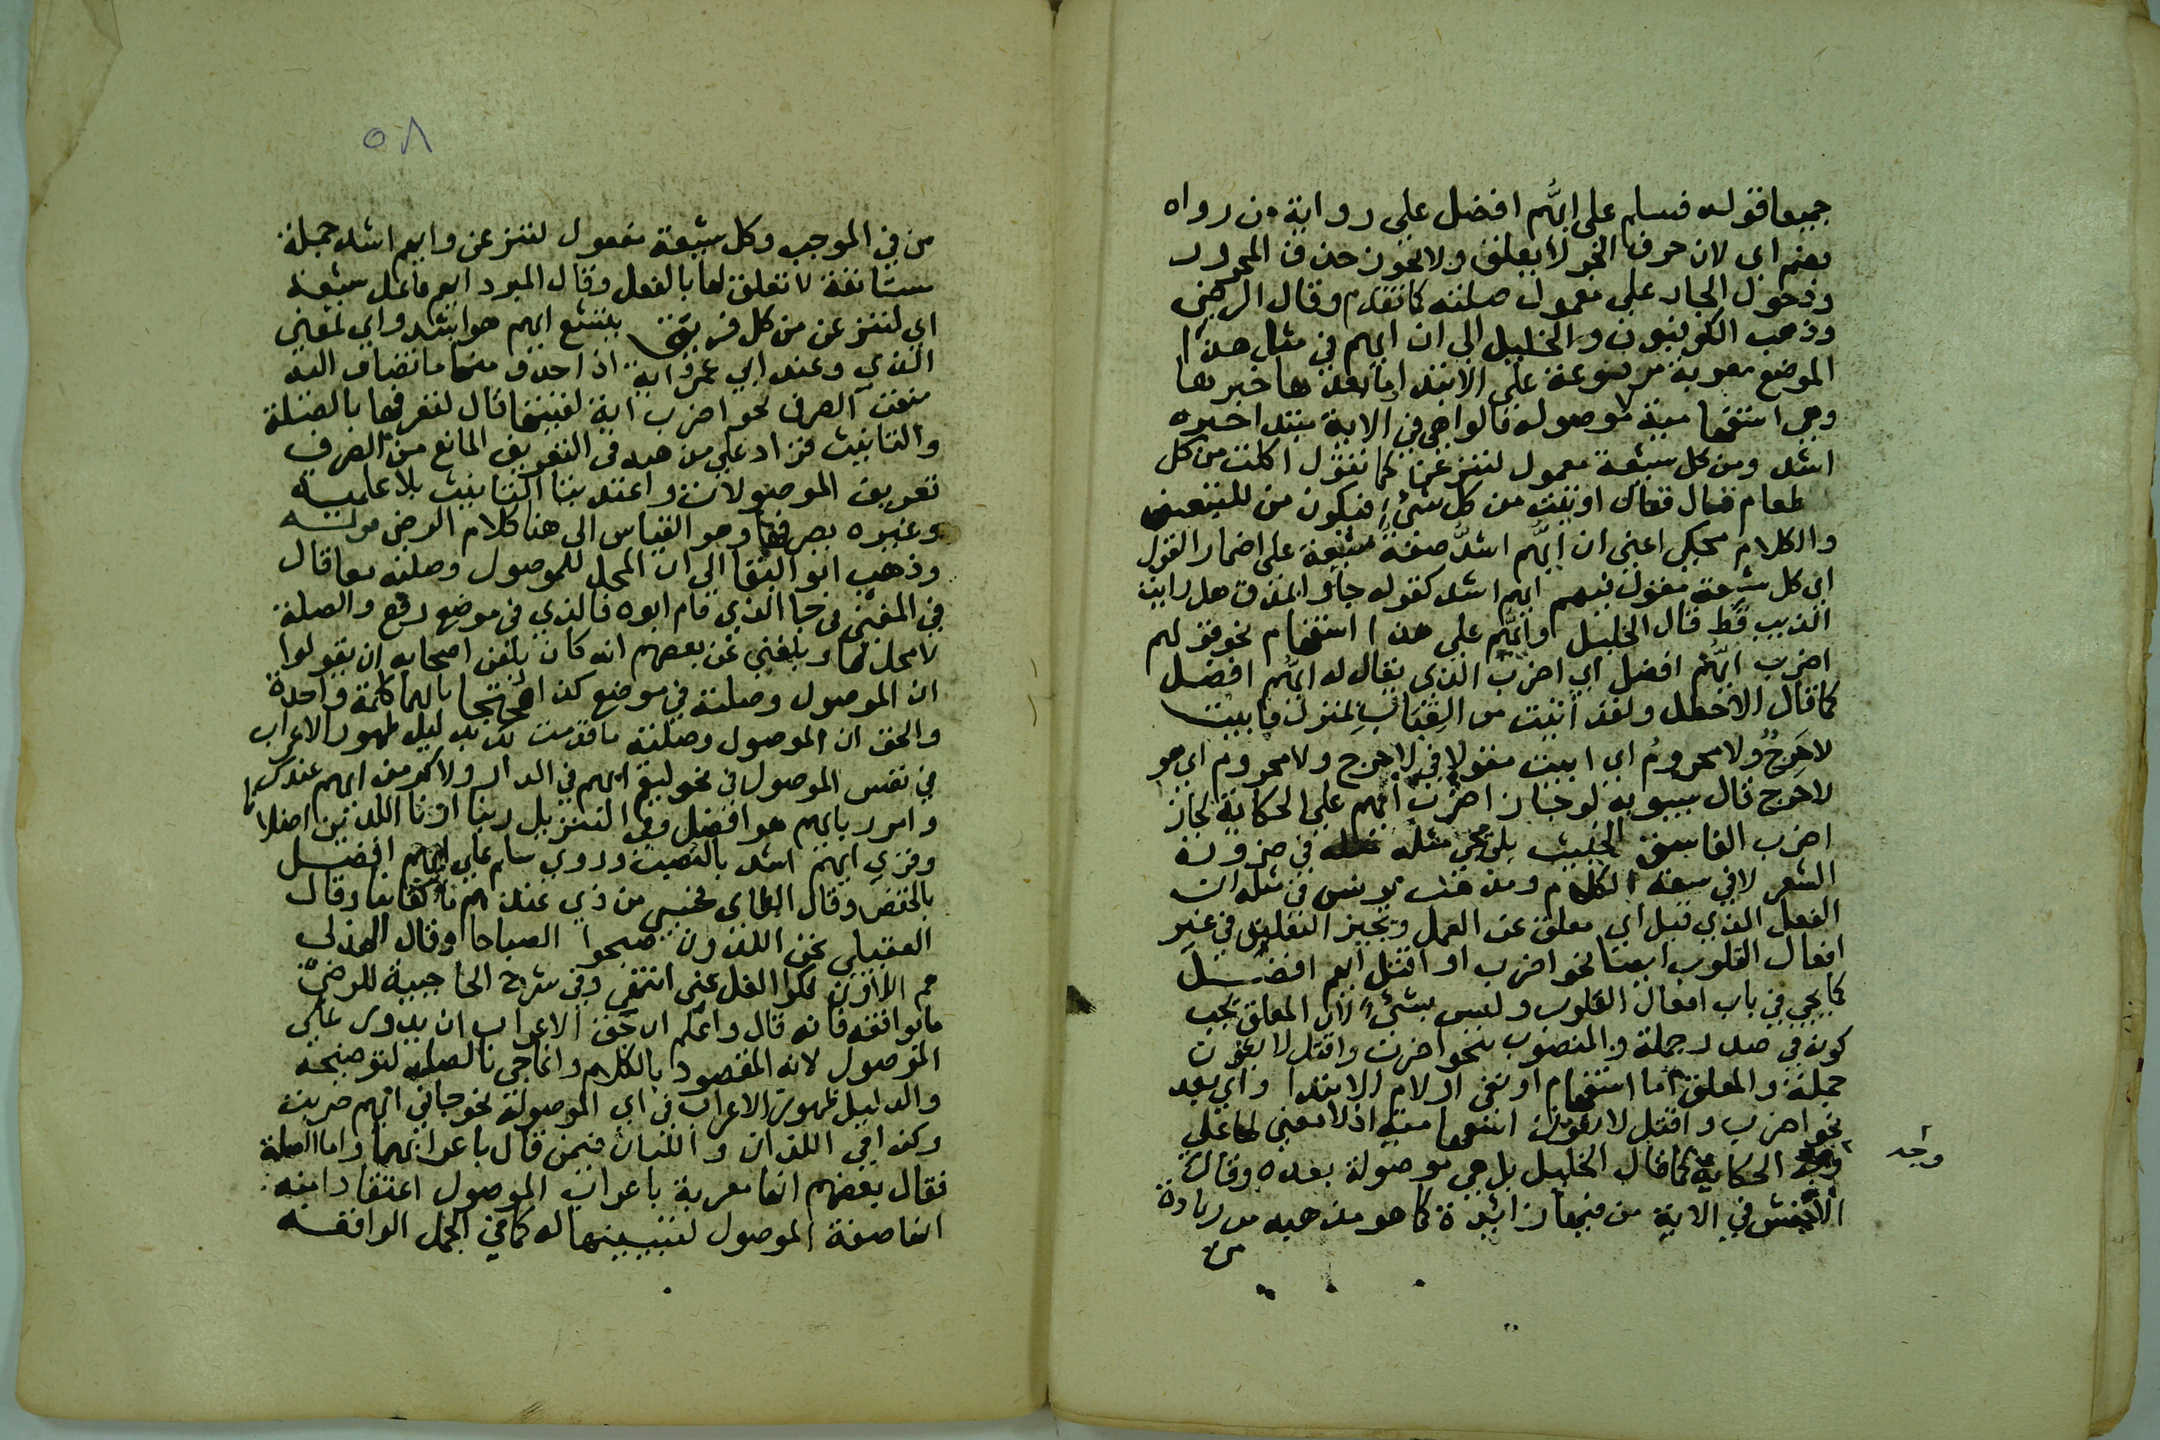 جميعا قوله فسلم على ايُّهم افضل على رواية من رواه
بضم اي لان حرف الجر لا يعلق ولا يجوز حذف المجرور
ودخول الجار على معمول صلته كما تقدم وقال الرضى
وذهب الكوفيون والخليل الى ان ايهم في مثل هذا
الموضع معربة مرفوعة على الابتدا ما بعدها خبرها
وهي استفهامية لا موصولة قالوا هي في الاية مبتدا خبره
اشد ومن كل شيعة معمول لننزعن كما تقول اكلت من كل
طعام قال تعالى اوتيت من كل شيء فيكون من للتبعيض
والكلام محكي اعني ان ايُّهم اشدُّ صفة شيعة على اضمار القول
اي كل شيعة مقول فيهم ايهم اشد كقوله جاؤا بمذق هل رايت
الذيب قط قال الخليل وايُّهم على هذا استفهام نحو قولهم
اضرب ايُّهم افضل اي اضرب الذي يقال له ايُّهم افضل
كما قال الاخطل ولقد أبيت من الفتاة بمنزل فابيت
لا حَرِجٌ ولا محرومُ اي ابيت مقولا فيَّ لا حرج ولا محروم اي هو
لا حرج قال سيبويه لو جاز اضرب ايُّهم على الحكاية لجاز
اضرب الفاسق الخبيث بل يجي مثله في ضرورة
الشعر لا في سعة الكلام ومذهب يونس في مثله ان
الفعل الذي قبل اي معلق عن العمل ويجيز التعليق في غير
افعال القلوب ايضا نحو اضرب او اقتل ايهم افضل
كما يجي في باب افعال القلوب وليس بشيء لان المعلق يجب
كونه في صدر جملة والمنصوب بنحو اضرب واقتل لا يكون
جملة والمعلق اما استفهام او نفى او لام الابتدا واي بعد
نحو اضرب واقتل لا يكون استفهامية اذ لا معنى لها على
وجه الحكاية كما قال الخليل بل هي موصولة بعده وقال
وجه
الاخفش في الاية من فيها زائدة كما هو مذهبه من زيادة
من
٥٨
من في الموجب وكل شيعة مفعول لننزعن وايهم اشد جملة
مستانفة لا تعلق لها بالفعل وقال المبرد ايهم فاعل شيعة
اي لننزعن من كل فريق يتشيع ايهم هو اشد واي بمعنى
الذي وعند ابي عمرو اية اذا حذف منها ما تضاف اليه
منعت الصرف نحو اضرب اية لقيتها قال لتعرفها بالصلة
والتانيث فزاد على مذهبه في التعريف المانع من الصرف
تعريف الموصولات واعتد بتا التانيث بلا علمية
وغيره يصرفها وهو القياس الى هنا كلام الرضى قوله
وذهب ابو البقا الى ان المحل للموصول وصلته معا قال
في المغني في جا الذي قام ابوه فالذي في موضع رفع والصلة
لا محل لها وبلغني عن بعضهم انه كان يلقن اصحابه ان يقولوا
ان الموصول وصلته في موضع كذا محتجا بانهما كلمة واحدة
والحق ان الموصول وصلته ما قدمت لك بدليل ظهور الاعراب
في نفس الموصول في نحو ليقم ايهم في الدار ولاكرمن ايهم عندك
وامرر بايهم هو افضل وفي التنزيل ربنا ارنا اللذين اضلانا
وقري ايهم اشد بالنصب وروي سلم على ايهم افضل
بالخفض وقال الطاى فحسبي من ذي عندهم ما كفانيا وقال
العقيلي نحن اللذون صبحوا الصباحا وقال الهذلي
هم اللاؤن فكوا الغل عني انتهى وفي شرح الحاجبية للرضى
ما يوافقه فانه قال واعلم ان حق الاعراب ان يدور على
الموصول لانه المقصود بالكلام وانما جي بالصلة لتوضيحه
والدليل ظهور الاعراب في اي الموصولة نحو جاني ايهم ضربت
وكذا في اللذان واللتان فيمن قال باعرابهما واما الصلة
فقال بعضهم انها معربة باعراب الموصول اعتقادا منه
انها صفة الموصول لتبيينها له كما في الجمل الواقعة